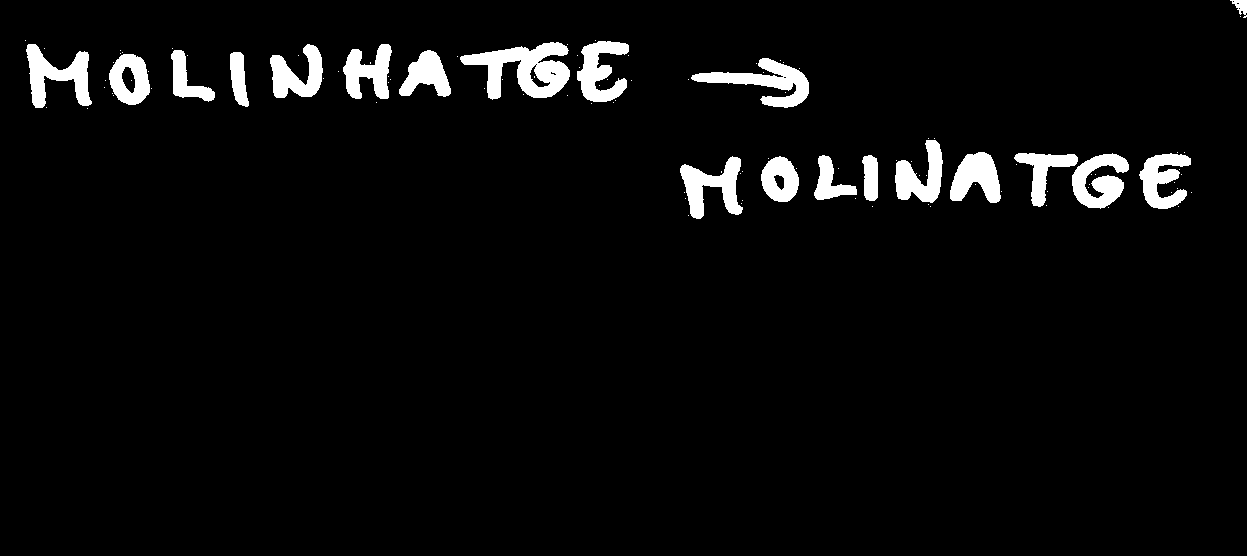 MOLINHATGE →
MOLINATGE